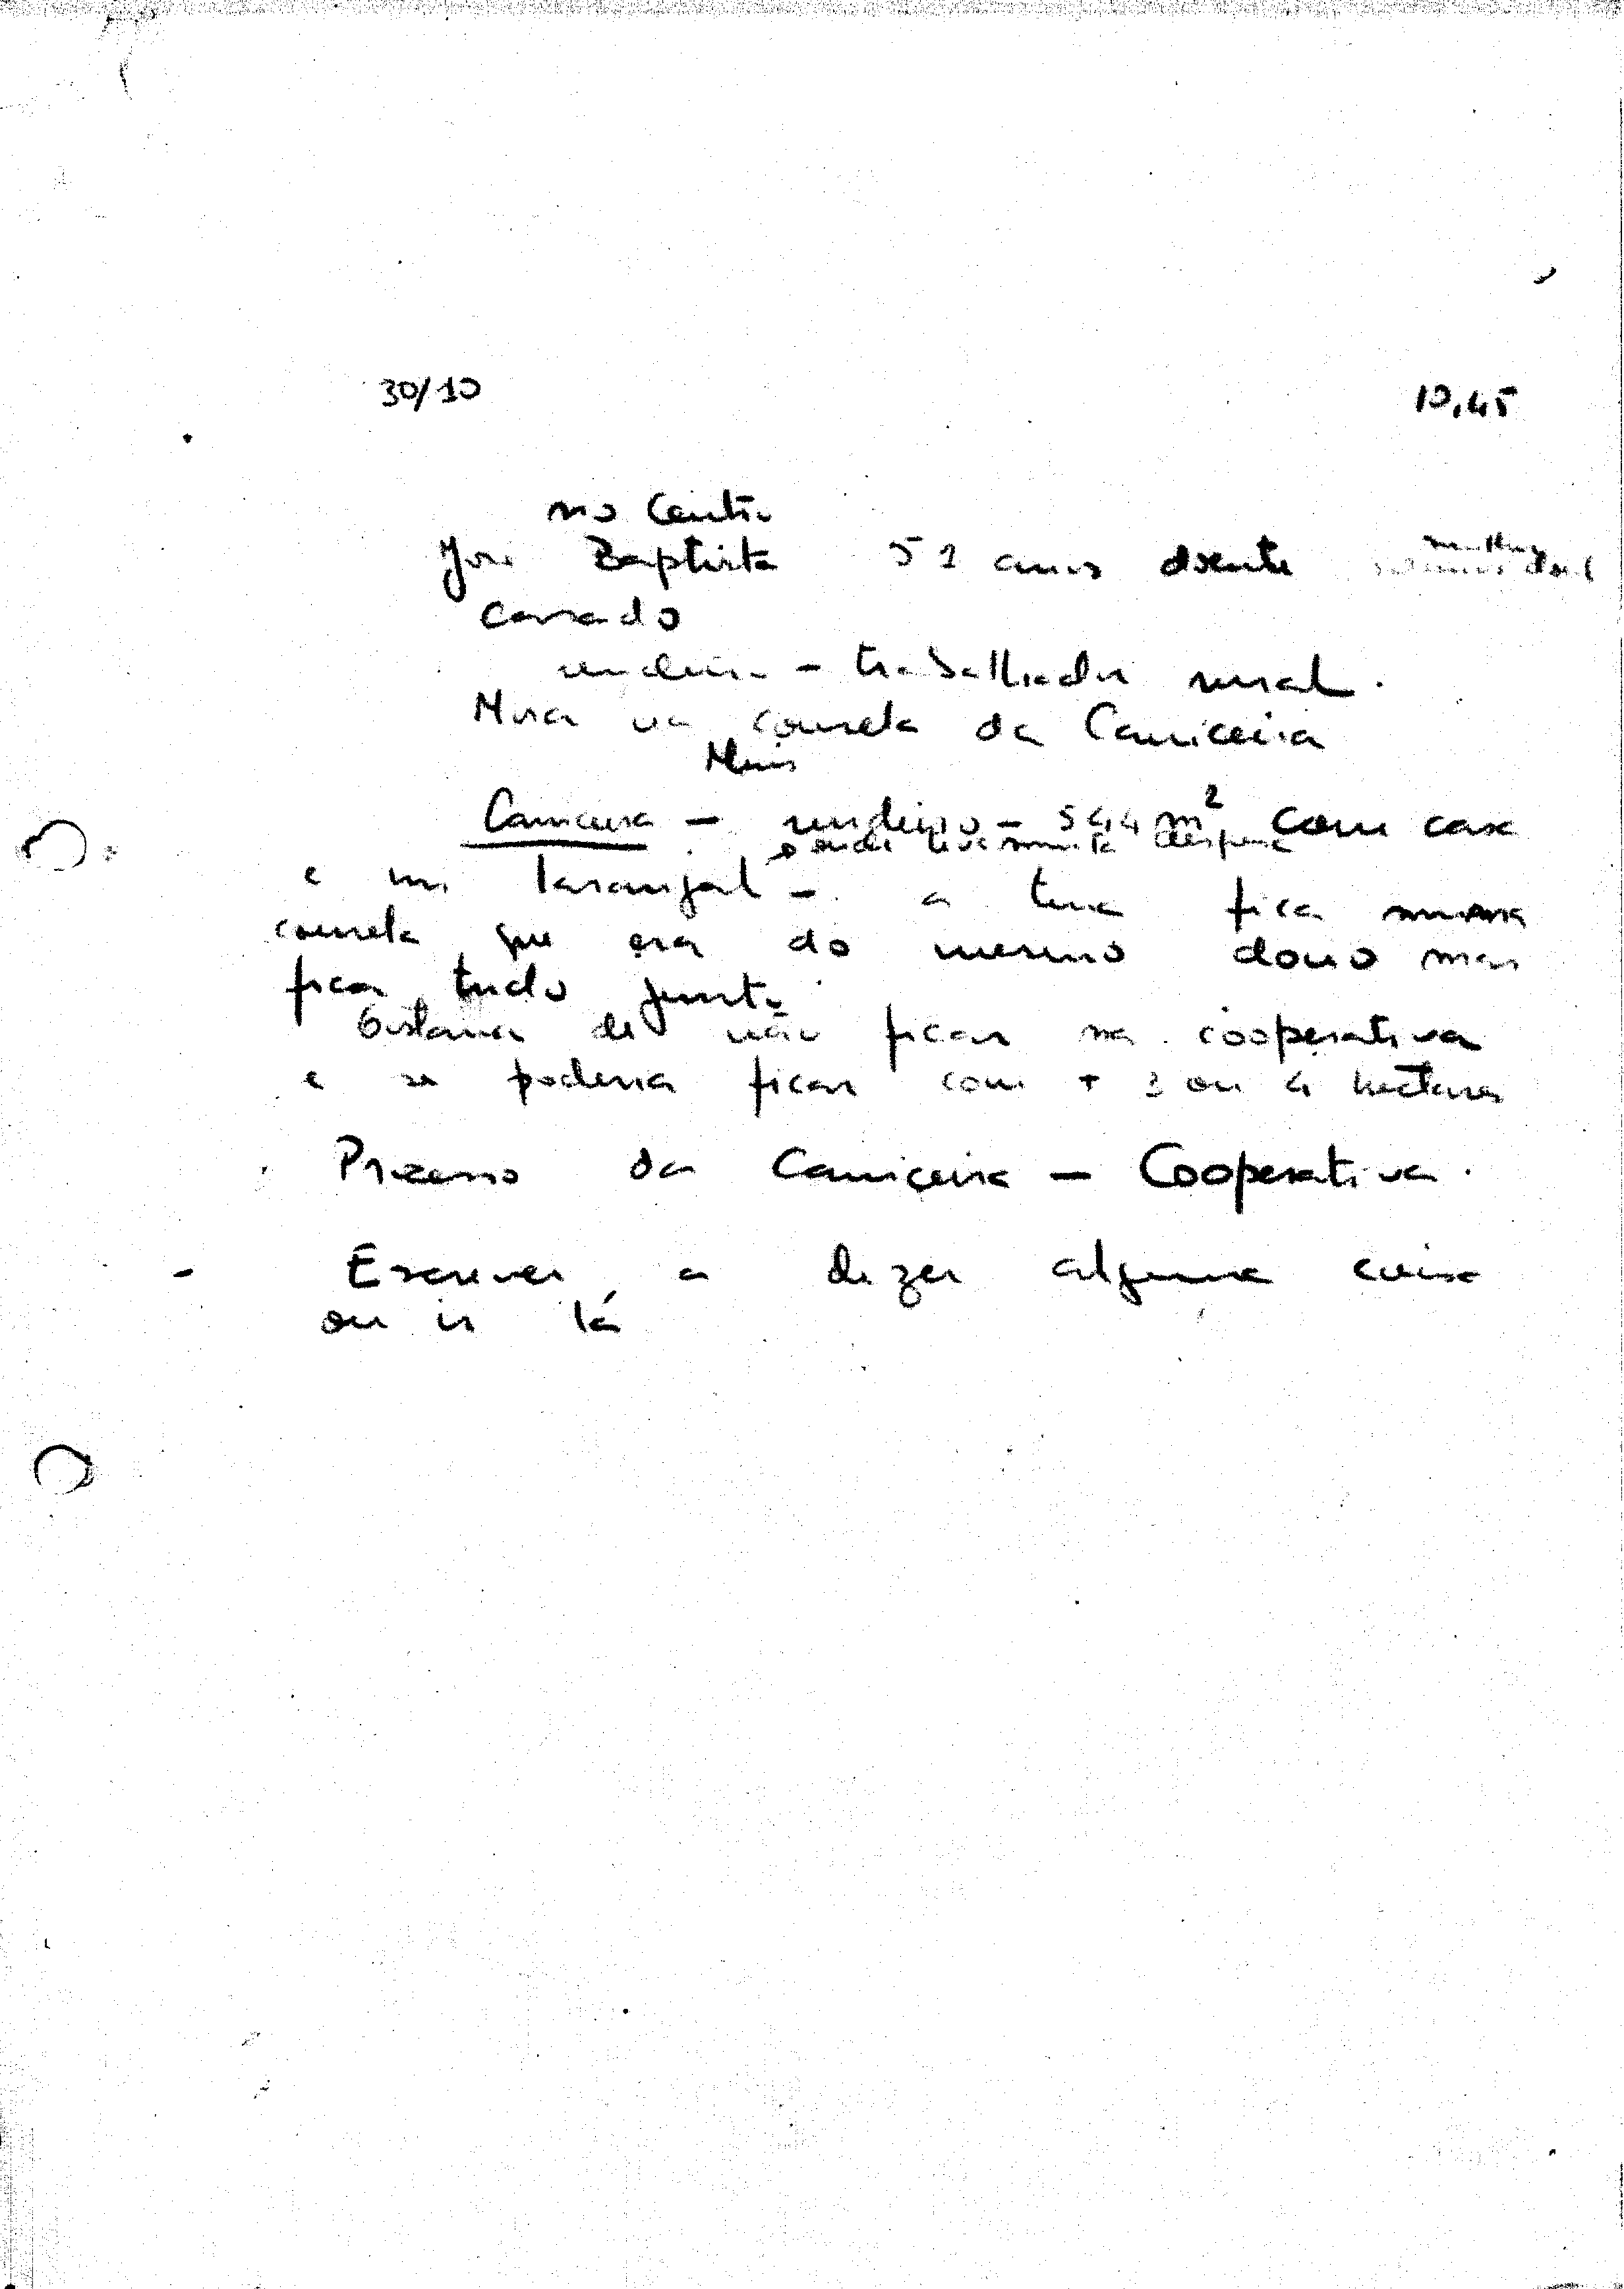 30/10 10,45
no Centro
José Baptista 52 anos doente mulher
casado
rendeiro - trabalhador rural.
Mora na courela da Caniceira
Caniceira - rendeiro - 544 m² com casa
onde teve muita despesa
e um laranjal - a terra fica numa
courela que era do mesmo dono mas
fica tudo junto.
Gostaria de não ficar na cooperativa
e se poderia ficar com + 3 ou 4 hectares
Processo da Caniceira - Cooperativa.
- Escrever a dizer alguma coisa
ou ir lá